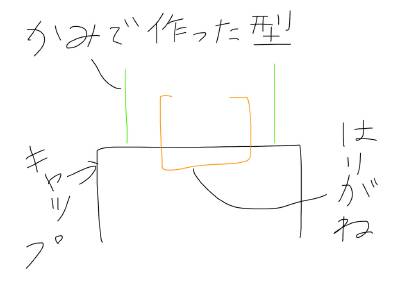 かみで作った型
キャップ
はりがね